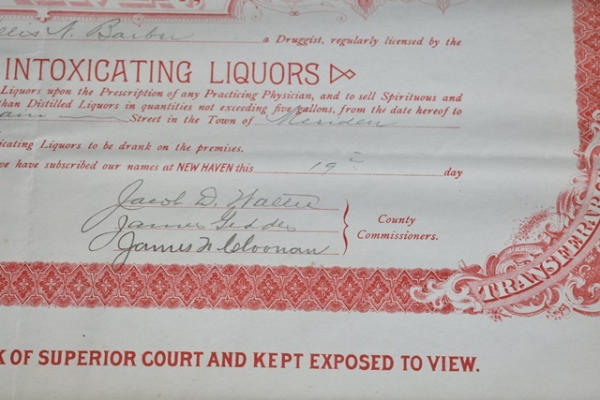 llis N. Barber a Druggist, regularly licensed by the
INTOXICATING LIQUORS
Liquors upon the Prescription of any Practicing Physician, and to sell Spirituous and
than Distilled Liquors in quantities not exceeding five gallons, from the date hereof to
Street in the Town of Meriden
icating Liquors to be drank on the premises.
ve have subscribed our names at NEW HAVEN this 19th day
Jacob D. Walter
James Geddes
James N. Cloonan
County
Commissioners.
TRANSFERAB
K OF SUPERIOR COURT AND KEPT EXPOSED TO VIEW.